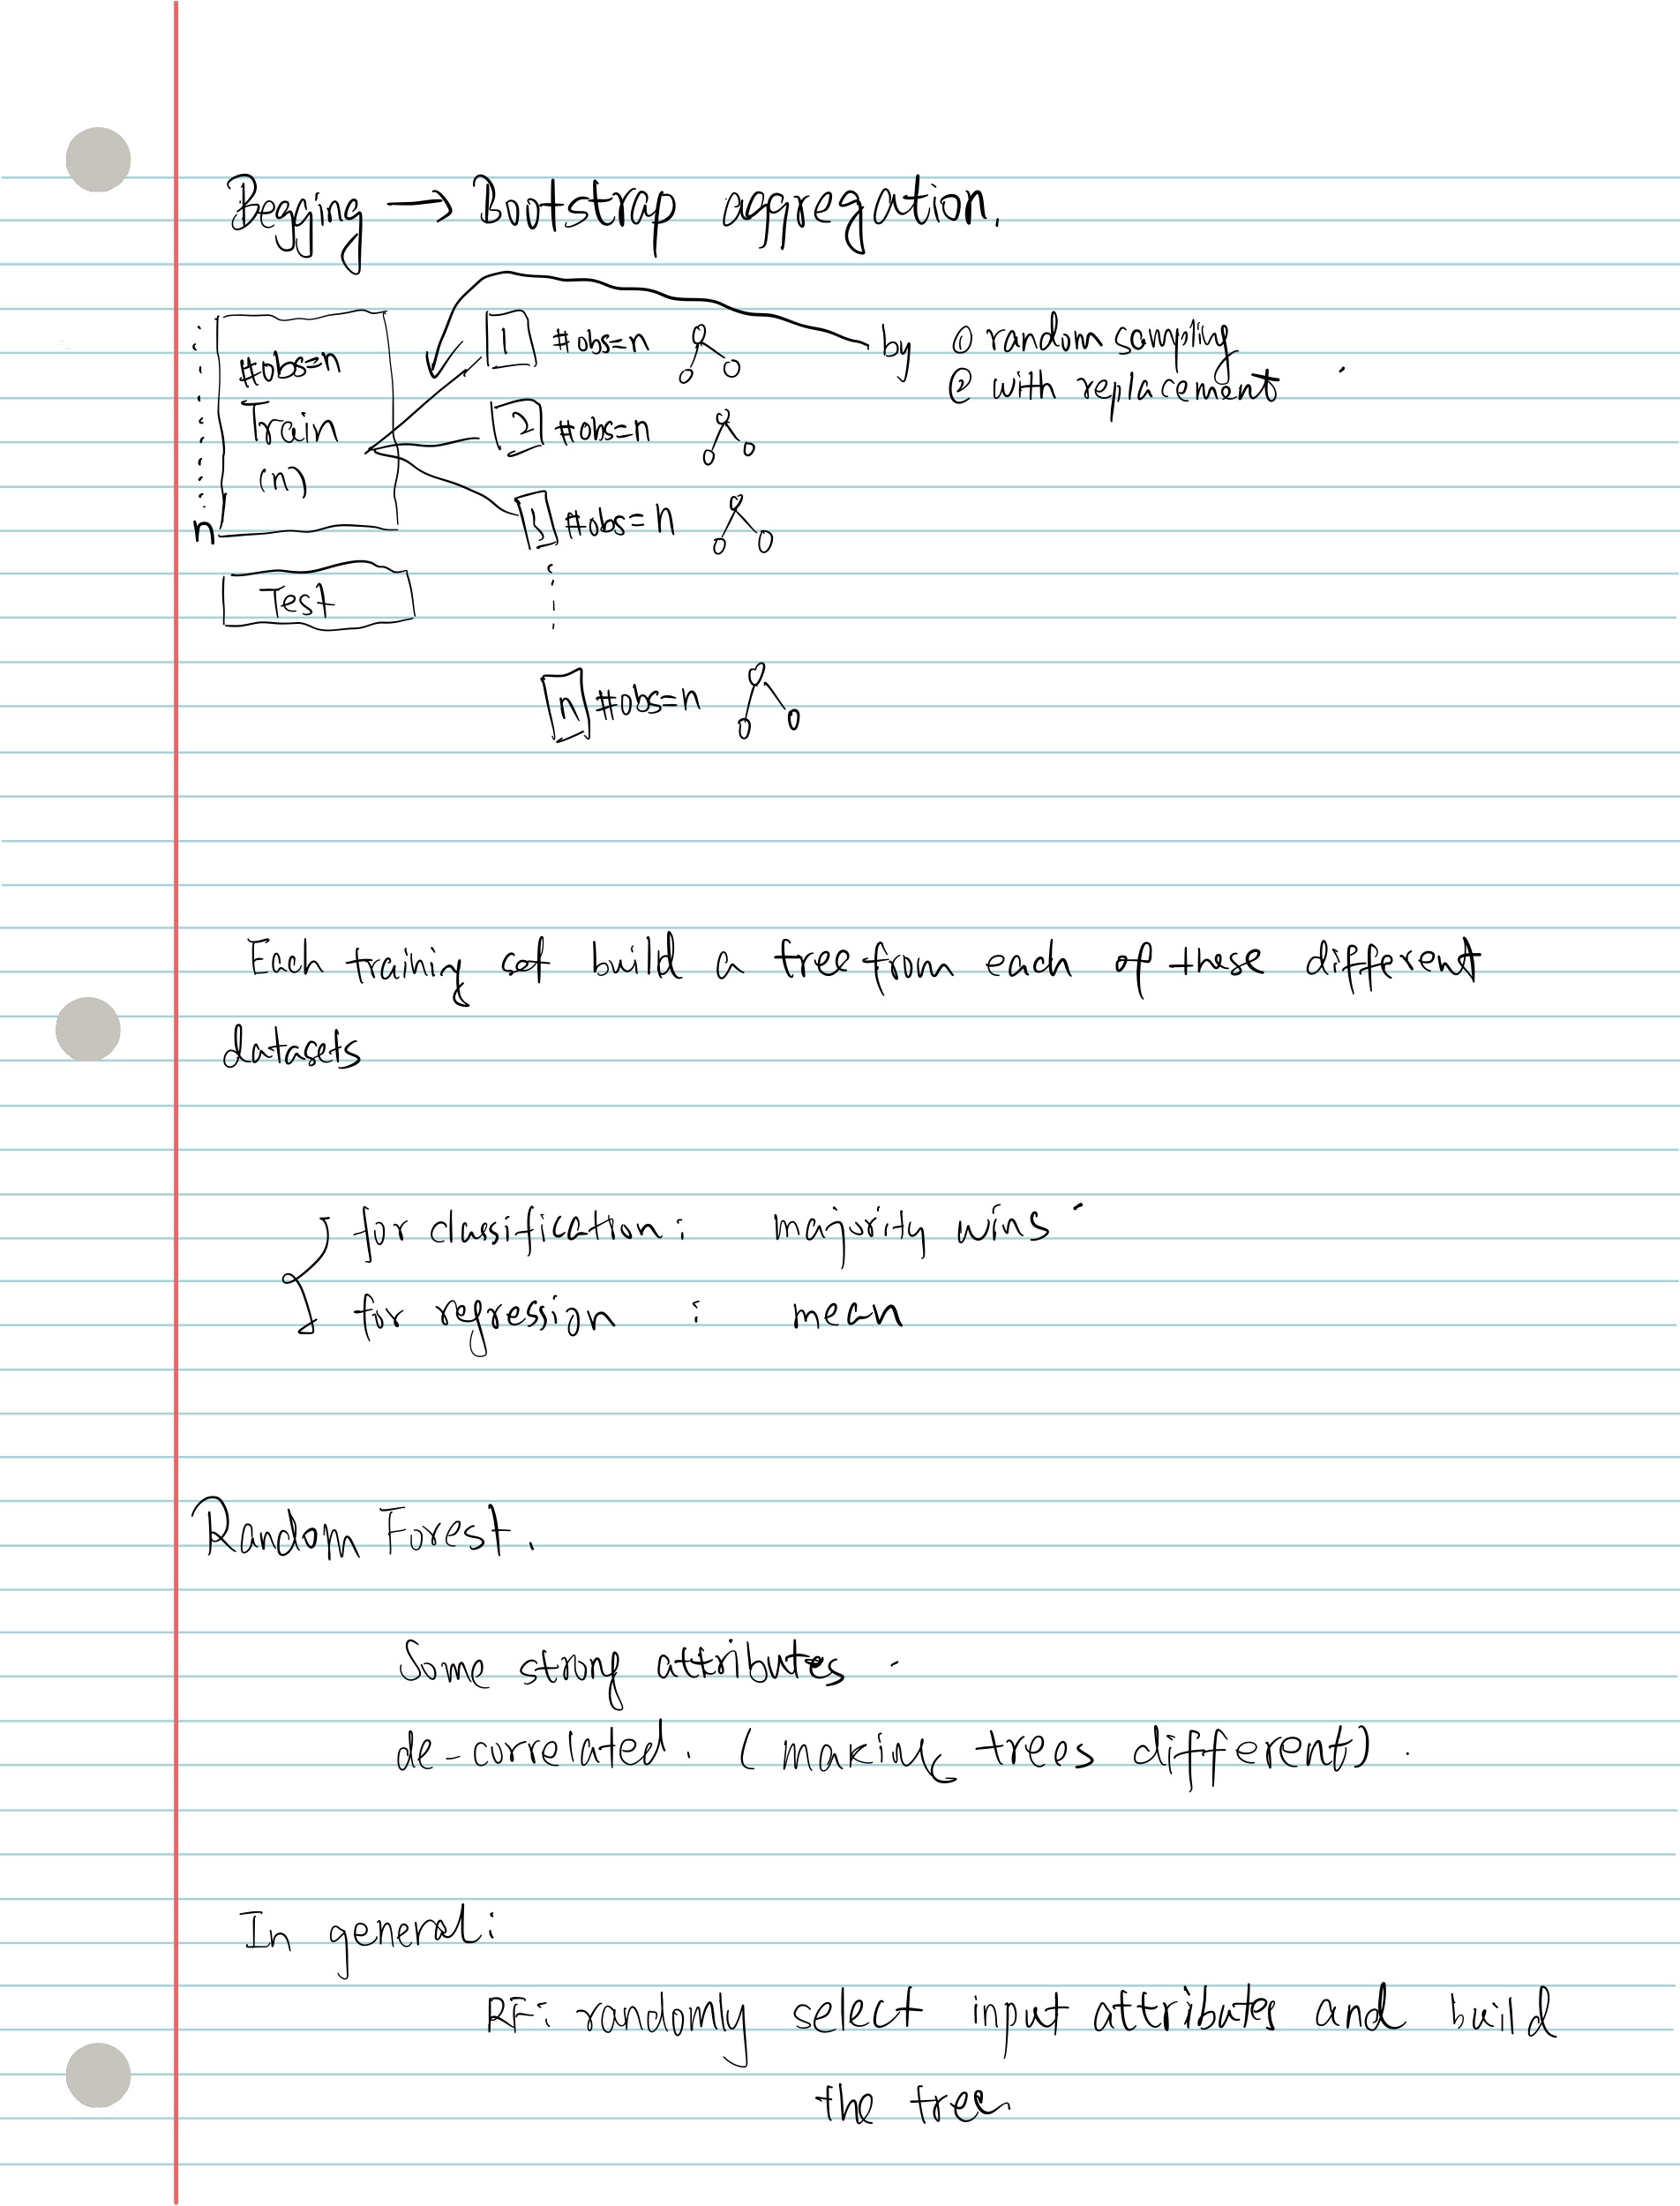 Begging → Bootstrap aggregation.
#obs=n
Train
(n)
n
Test
1 #obs=n
2 #obs=n
3 #obs=n
n #obs=n
by ① random sampling
② with replacement
Each training set build a tree from each of these different
datasets
for classification: majority wins
for regression : mean
Random Forest.
Some strong attributes.
de-correlated. (making trees different).
In general:
RF: randomly select input attributes and build
the tree